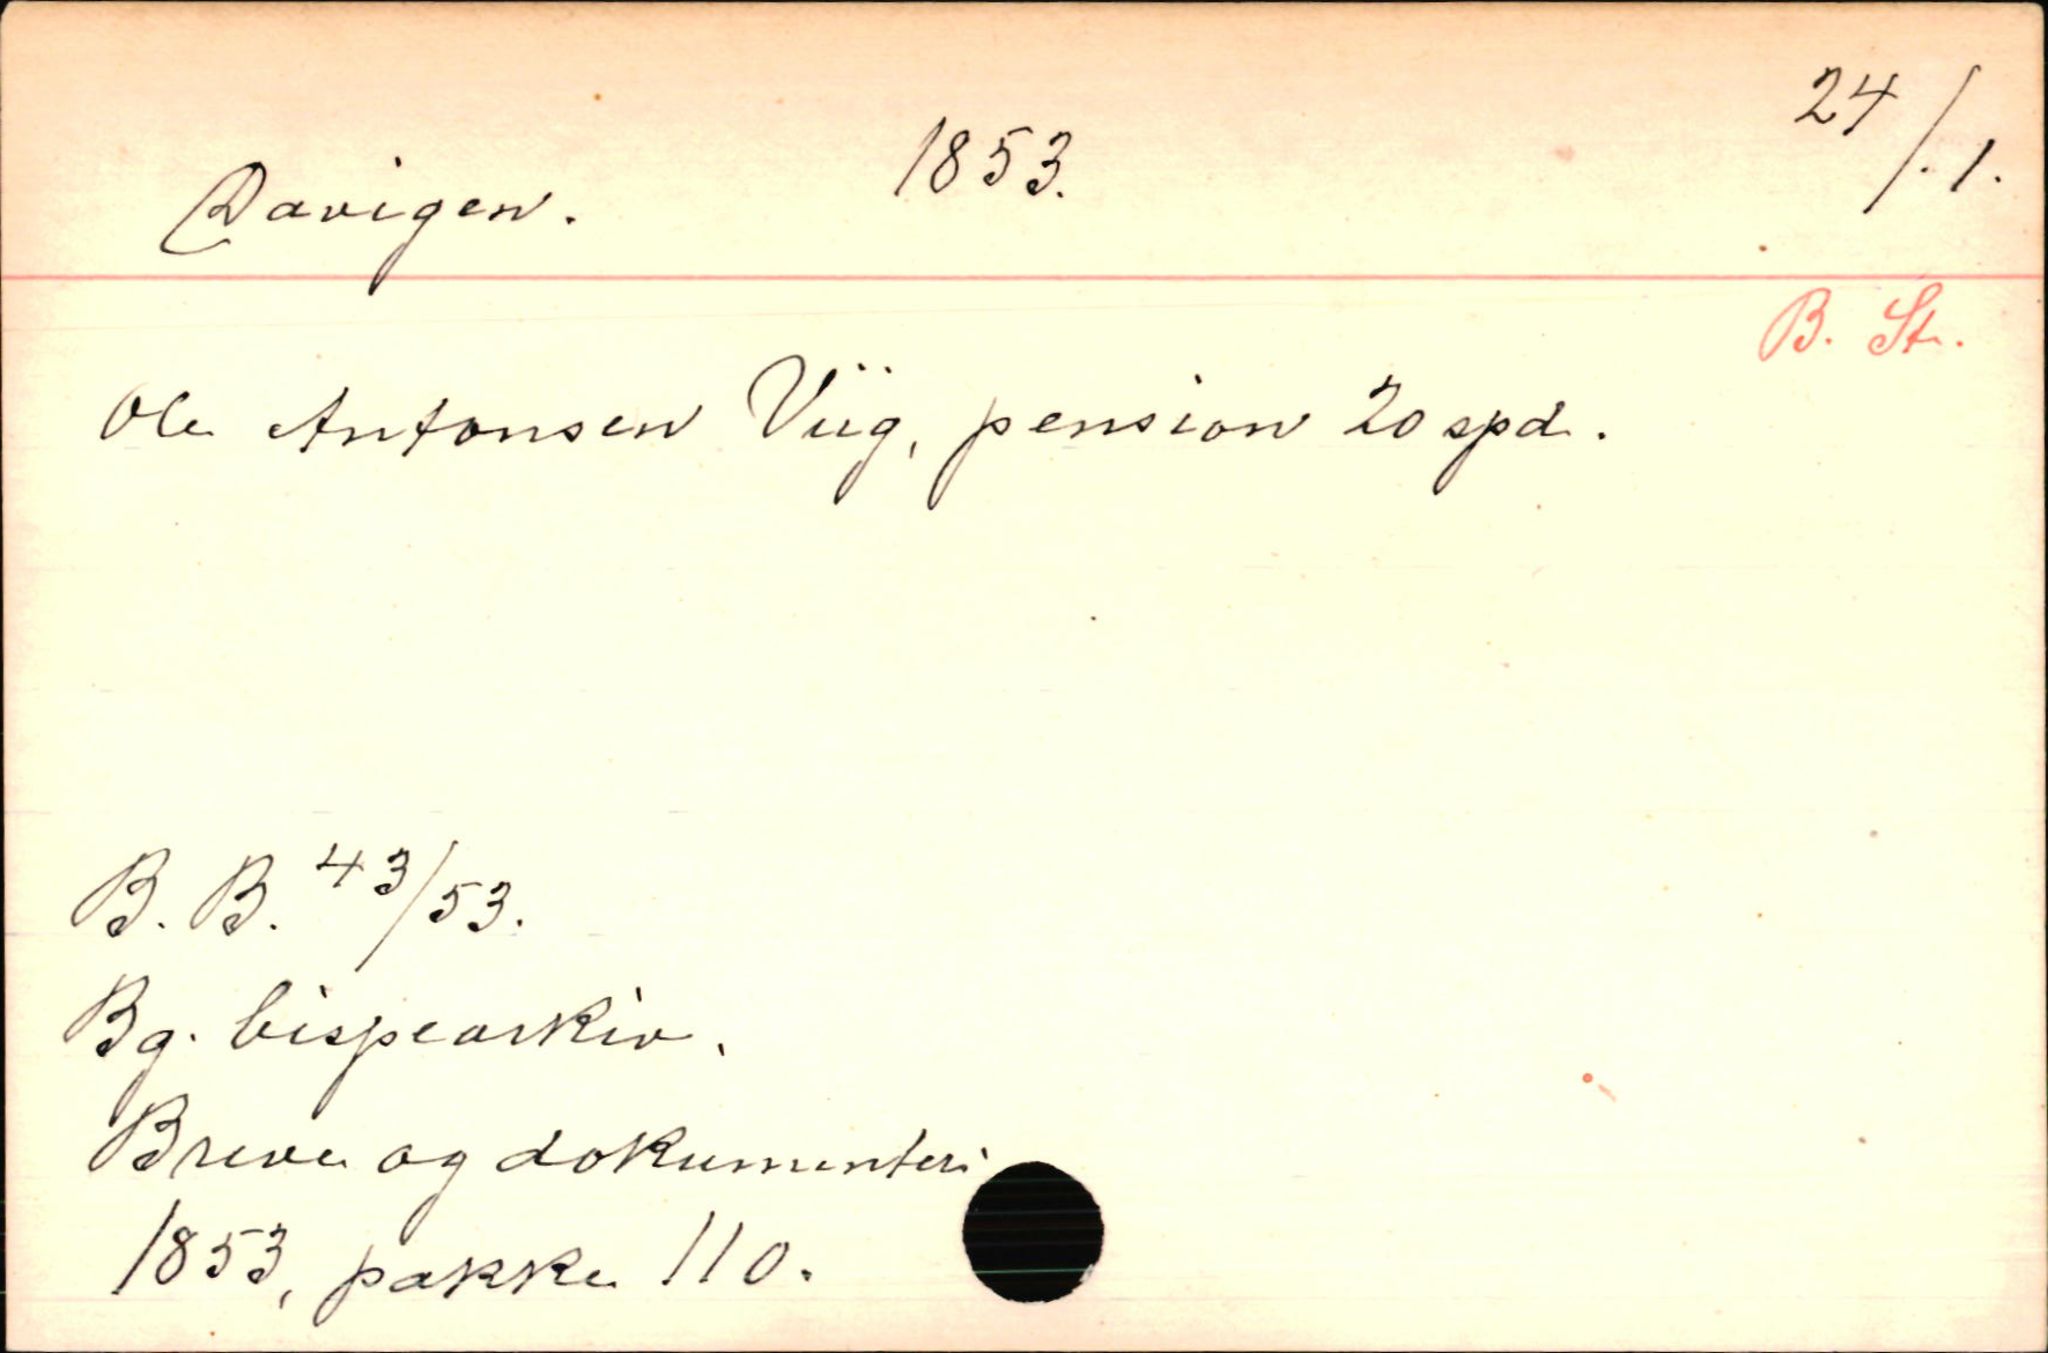 Davigen. 1853. 24/1.
B. St.
Ole Antonsen Viig, pension 20 spd.
B. B. 43/53.
Bg. bispearkiv.
Breve og dokumenter
1853, pakke 110.